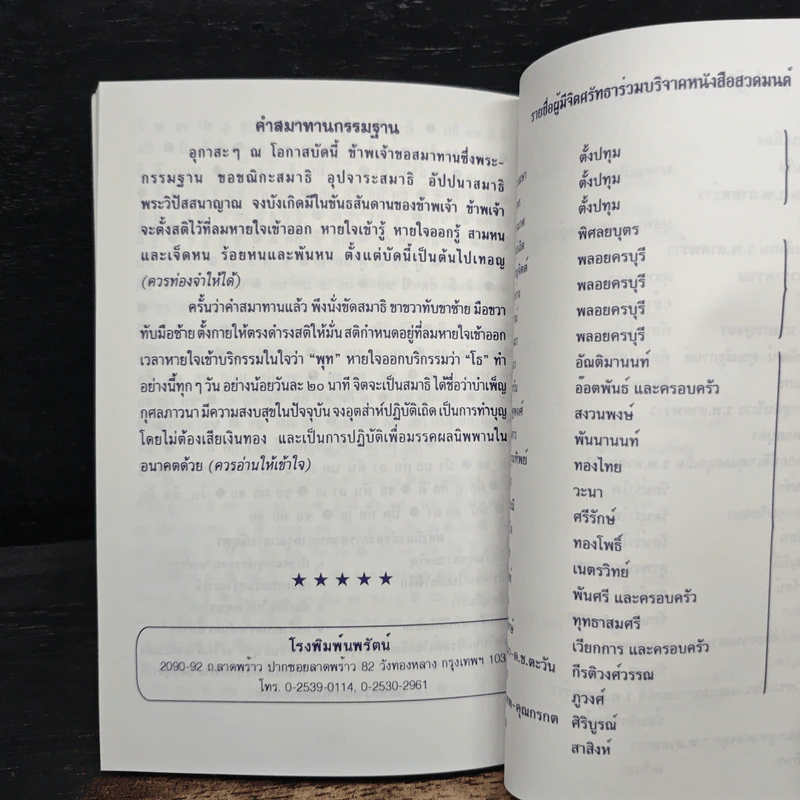 คำสมาทานกรรมฐาน
อุกาสะๆ ณ โอกาสบัดนี้ ข้าพเจ้าขอสมาทานซึ่งพระ-
กรรมฐาน ขอขณิกะสมาธิ อุปจาระสมาธิ อัปปนาสมาธิ
พระวิปัสสนาญาณ จงบังเกิดมีในขันธสันดานของข้าพเจ้า ข้าพเจ้า
จะตั้งสติไว้ที่ลมหายใจเข้าออก หายใจเข้ารู้ หายใจออกรู้ สามหน
และเจ็ดหน ร้อยหนและพันหน ตั้งแต่บัดนี้เป็นต้นไปเทอญ
(ควรท่องจำให้ได้)
ครั้นว่าคำสมาทานแล้ว พึงนั่งขัดสมาธิ ขาขวาทับขาซ้าย มือขวา
ทับมือซ้าย ตั้งกายให้ตรงดำรงสติให้มั่น สติกำหนดอยู่ที่ลมหายใจเข้าออก
เวลาหายใจเข้าบริกรรมในใจว่า “พุท” หายใจออกบริกรรมว่า “โธ” ทำ
อย่างนี้ทุกๆ วัน อย่างน้อยวันละ ๒๐ นาที จิตจะเป็นสมาธิ ได้ชื่อว่าบำเพ็ญ
กุศลภาวนา มีความสงบสุขในปัจจุบัน จงอุตส่าห์ปฏิบัติเถิด เป็นการทำบุญ
โดยไม่ต้องเสียเงินทอง และเป็นการปฏิบัติเพื่อมรรคผลนิพพานใน
อนาคตด้วย (ควรอ่านให้เข้าใจ)
★ ★ ★ ★ ★
โรงพิมพ์นพรัตน์
2090-92 ถ.ลาดพร้าว ปากซอยลาดพร้าว 82 วังทองหลาง กรุงเทพฯ 103
โทร. 0-2539-0114, 0-2530-2961
รายชื่อผู้มีจิตศรัทธาร่วมบริจาคหนังสือสวดมนต์
ตั้งปทุม
ตั้งปทุม
ตั้งปทุม
พิศลยบุตร
พลอยครบุรี
พลอยครบุรี
พลอยครบุรี
พลอยครบุรี
อัณติมานนท์
อ๊อตพันธ์ และครอบครัว
สงวนพงษ์
พันนานนท์
ทองไทย
วะนา
ศรีรักษ์
ทองโพธิ์
เนตรวิทย์
พันศรี และครอบครัว
ทุทธาสมศรี
เวียกการ และครอบครัว
ด.ช.ตะวัน กีรติวงศ์วรรณ
ภูวงศ์
คุณกรกต ศิริบูรณ์
สาสิงห์